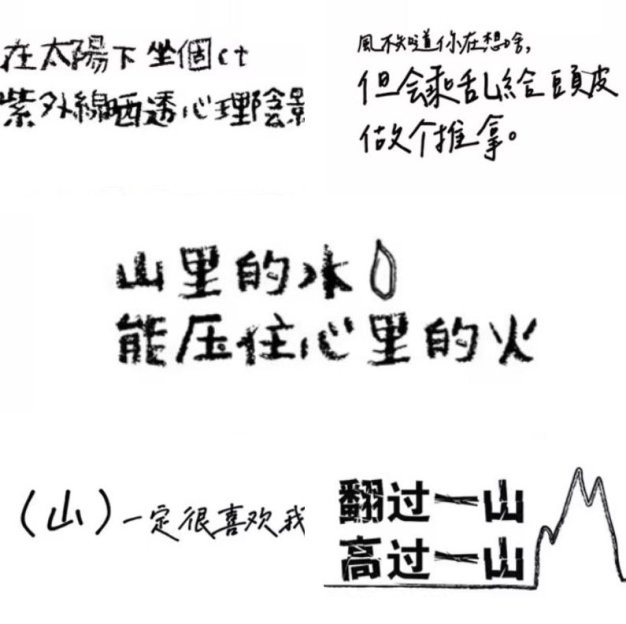 在太陽下坐個ct
紫外線晒透心理陰影
風不知道你在想啥,
但会乘乱給頭皮
做个推拿。
山里的水
能压住心里的火
(山)一定很喜欢我
翻过一山
高过一山